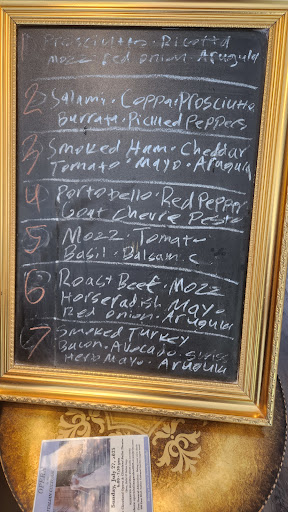 1 Prosciutto · Ricotta
Mozz red onion · Arugula
2 Salami · Coppa · Prosciutto
Burrata · Pickled Peppers
3 Smoked Ham · Cheddar
Tomato · Mayo · Arugula
4 Portobello · Red Pepper
Goat Chevre Pesto
5 Mozz · Tomato
Basil · Balsamic
6 Roast Beef · Mozz
Horseradish Mayo
Red onion · Arugula
7 Smoked Turkey
Bacon · Avocado · Swiss
Herb Mayo · Arugula
Sunday, July 27,